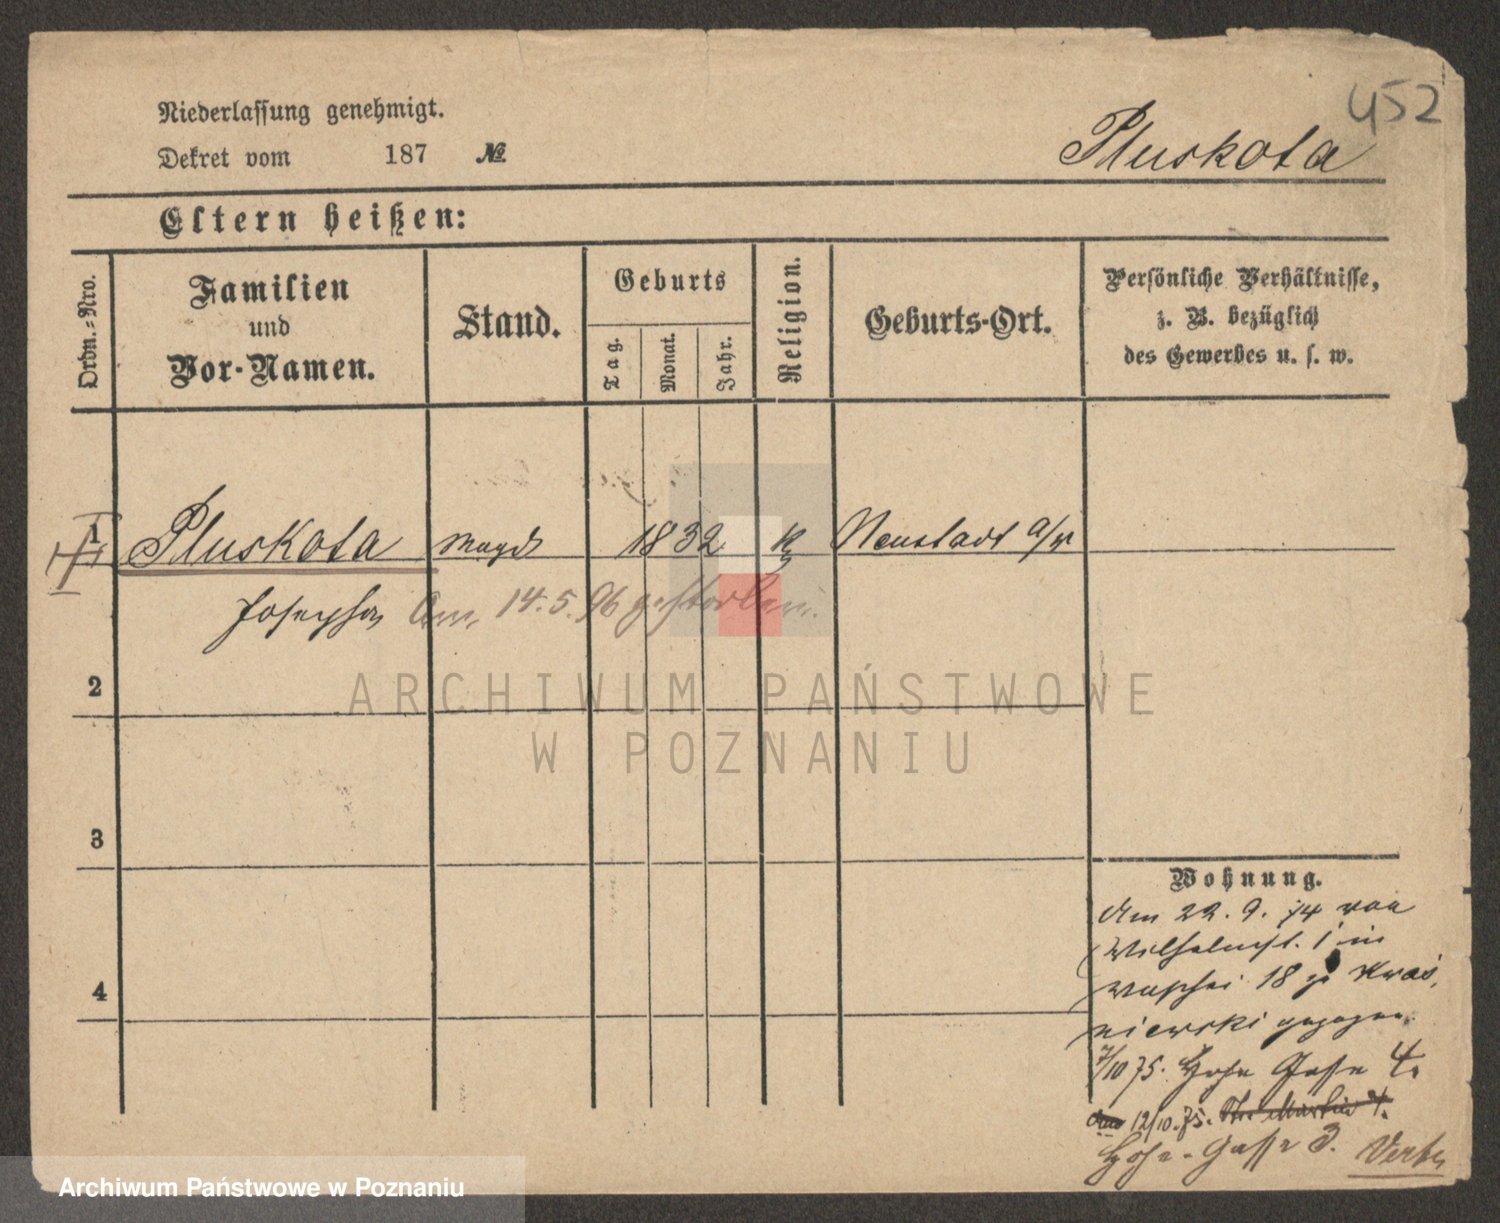 452
Niederlassung genehmigt.
Dekret vom 187 №
Pluskota
Eltern heißen:
Ordn.-Nro.
Familien
und
Vor-Namen.
Stand.
Geburts
Tag.
Monat.
Jahr.
Religion.
Geburts-Ort.
Persönliche Verhältnisse,
z. B. bezüglich
des Gewerbes u. s. w.
1 Pluskota Magd 1832 K Neustadt a/W
Josepha Am 14.5.96 gestorben.
2
3
4
Wohnung.
Am 22. 9. 74 von
Wilhelmst. 1 in
18 zu Kras
niewski gezogen.
7/10 75. Hohe Gasse 4.
am 12/10.75. St. Martin 4.
Hohe-Gasse 3.
ARCHIWUM PAŃSTWOWE
W POZNANIU
Archiwum Państwowe w Poznaniu